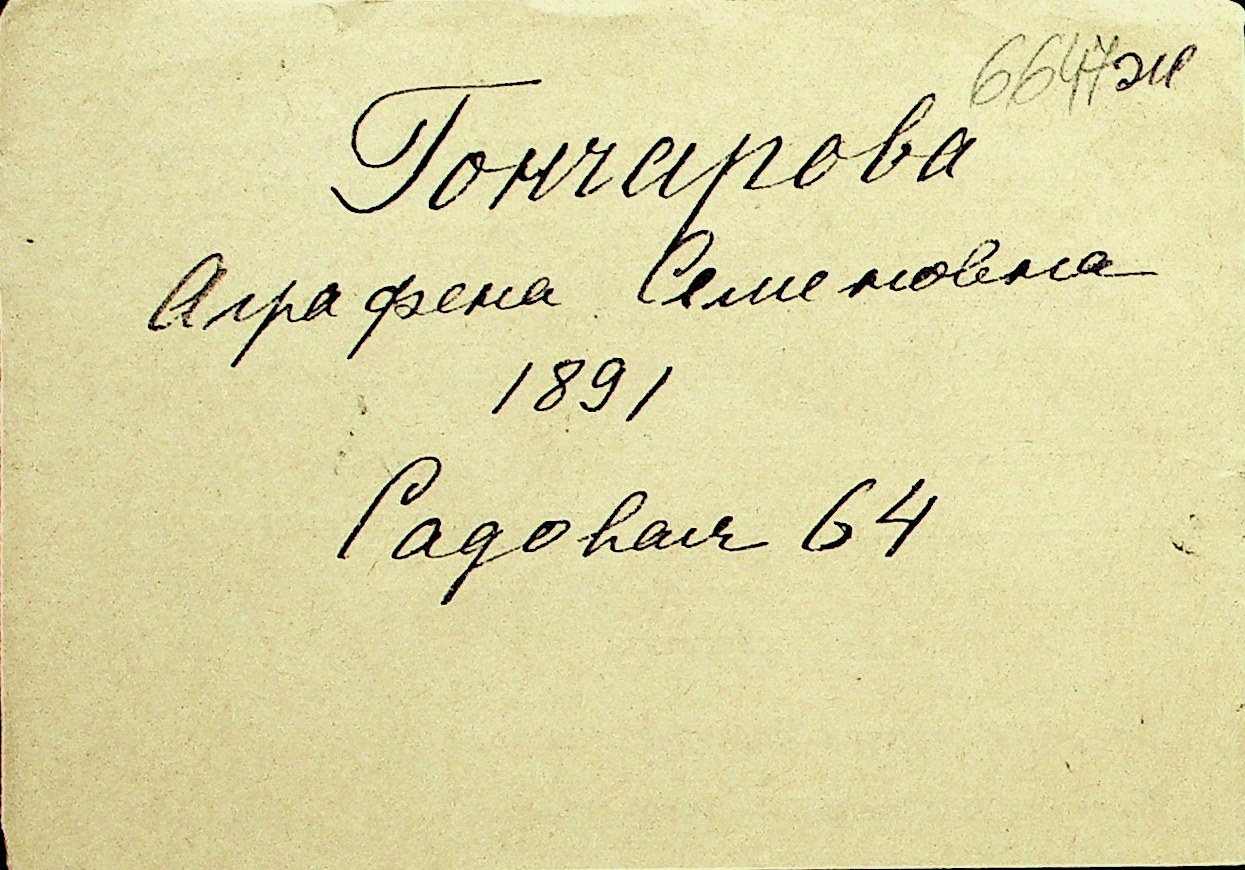 6647ж
Гончарова
Аграфена Семеновна
1891
Садовая 64